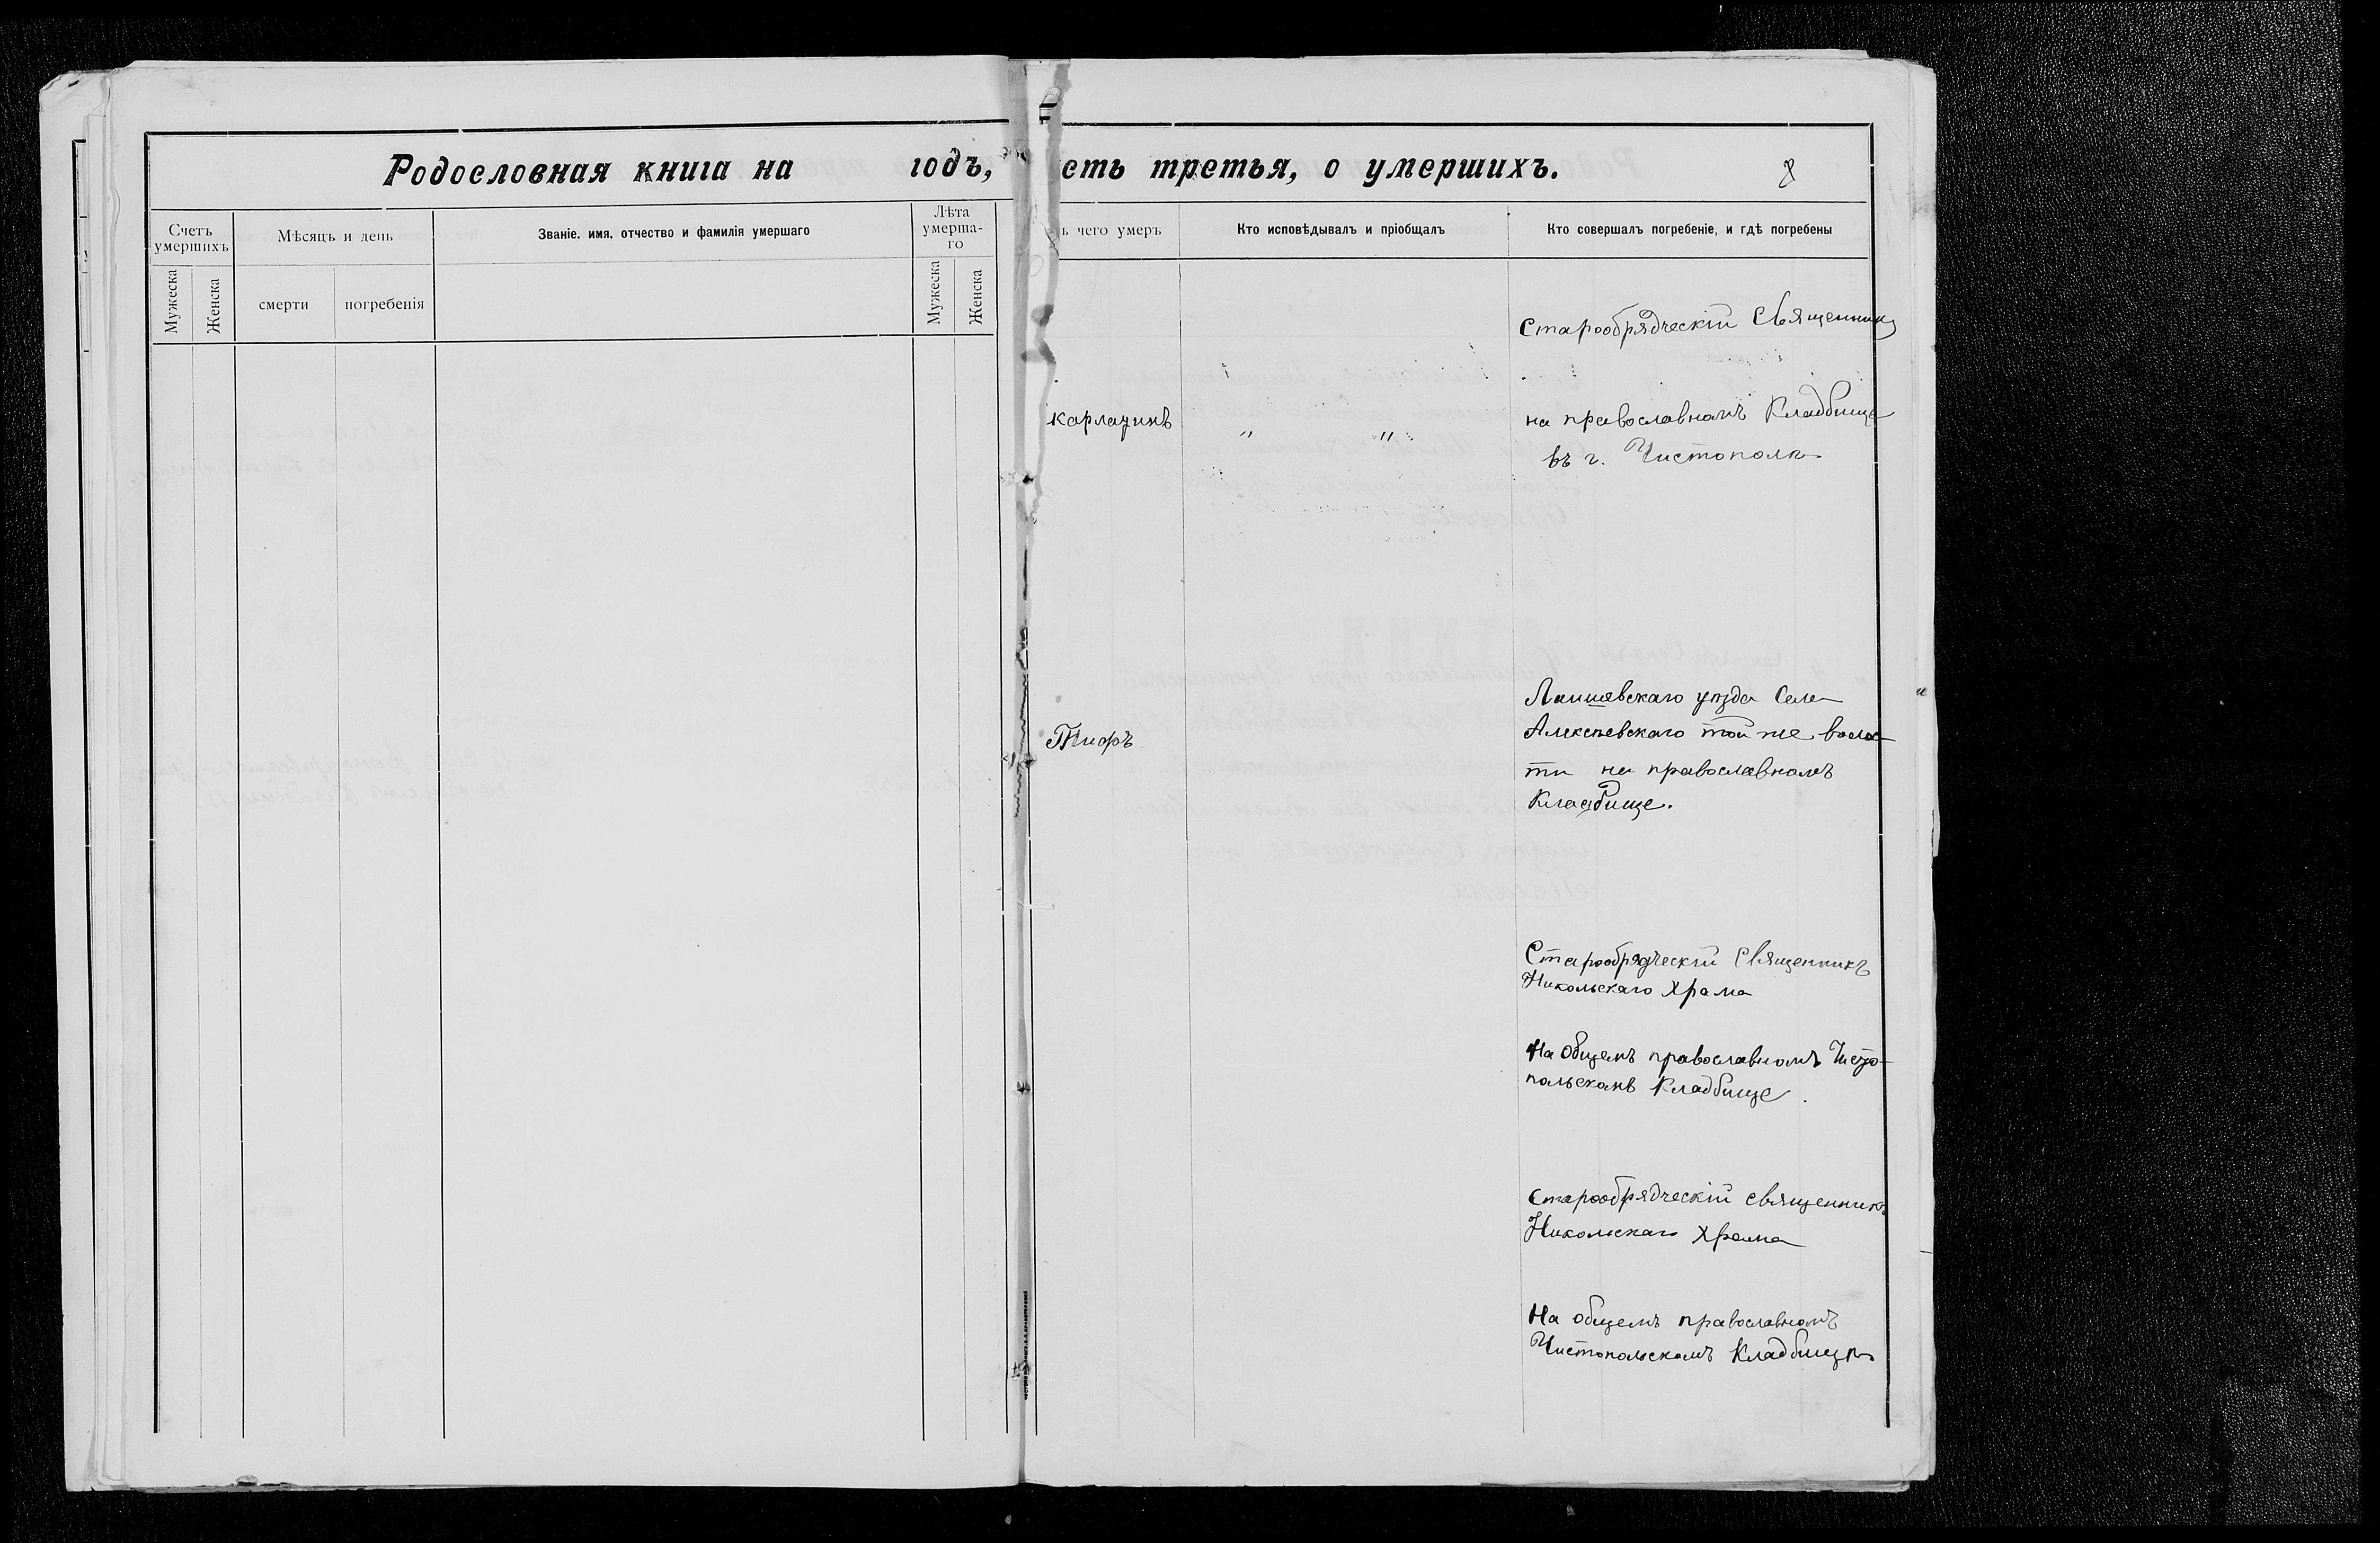 Родословная книга на годъ,
сть третья, о умершихъ.
8
Счетъ умершихъ
Мѣсяцъ и день
Званіе, имя, отчество и фамилія умершаго
Лѣта умерша-го
Мужеска
Женска
смерти
погребенія
Мужеска
Женска
ъ чего умеръ
Кто исповѣдывалъ и пріобщалъ
Кто совершалъ погребеніе, и гдѣ погребены
Старообрядческій Священникъ
на православномъ Кладбище
въ г. Чистополѣ
" "
Тифъ
Лаишевскаго уѣзда Села
Алексѣевскаго той же волос
ти на православномъ
Кладбище.
Старообрядческій Священникъ
Никольскаго Храма
На Общемъ православномъ Чисто-
польскомъ Кладбище.
Старообрядческій священникъ
Никольскаго Храма
На общемъ православномъ
Чистопольскомъ Кладбищѣ